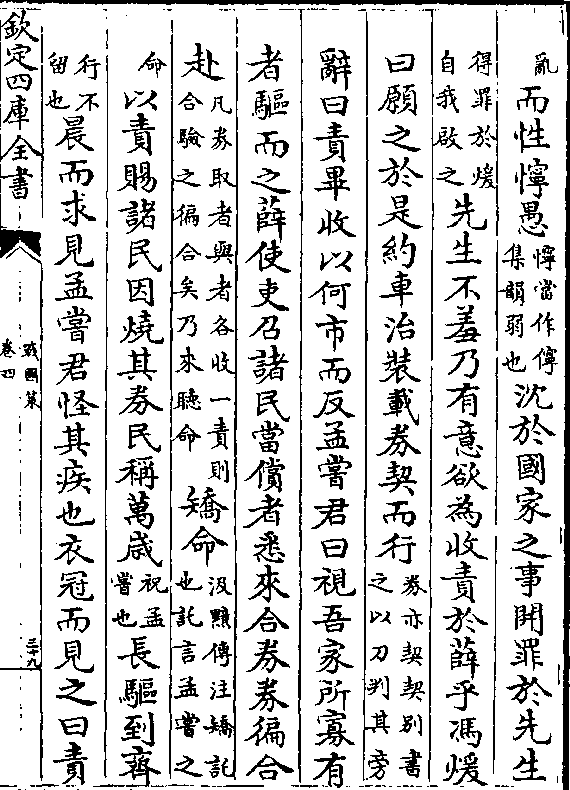 亂而性懧愚懧當作儜集韻弱也沈於國家之事開罪於先生
得罪於煖自我啟之先生不羞乃有意欲為收責於薛乎馮煖
曰願之於是約車治裝載券契而行券亦契契别書之以刀判其旁
辭曰責畢收以何市而反孟嘗君曰視吾家所寡有
者驅而之薛使吏召諸民當償者悉來合券券徧合
赴凡券取者與者各收一責則合驗之徧合矣乃來聽命矯命汲黯傳注矯託也託言孟嘗之
命以責賜諸民因燒其券民稱萬歳祝孟嘗也長驅到齊
行不留也晨而求見孟嘗君怪其疾也衣冠而見之曰責
欽定四庫全書
戰國策
卷四
三十九